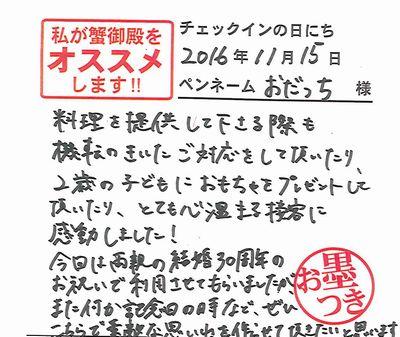 私が蟹御殿を
オススメ
します!!
チェックインの日にち
2016年11月15日
ペンネーム おだっち 様
料理を提供して下さる際も
機転のきいたご対応をして頂いたり、
2歳の子どもにおもちゃをプレゼントして
頂いたり、とても心温まる接客に
感動しました!
今日は両親の結婚30周年の
お祝いで利用させてもらいましたが、
また何か記念日の時など、ぜひ
こちらで素敵な思い出を作らせて頂きたいと思います
お墨つき